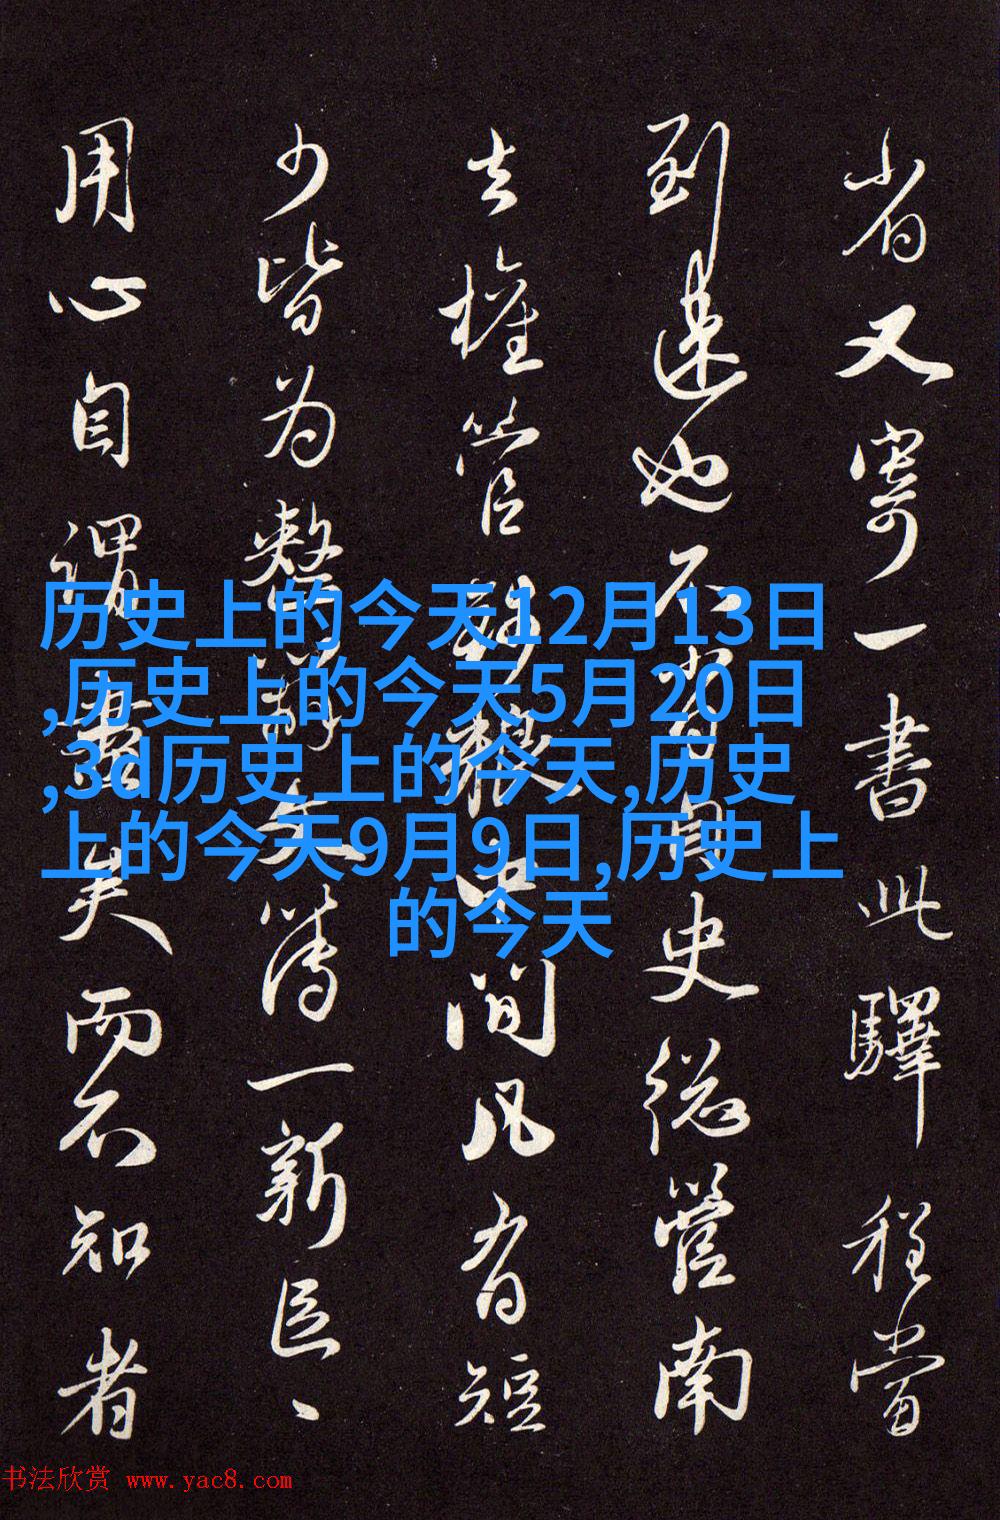 省又寄一書此驛程當
到速也不自史總管南
去權管中間凡有短
少皆为整一新臣
用心自謂盡矣而不知者
历史上的今天12月13日
,历史上的今天5月20日
,3d历史上的今天,历史
上的今天9月9日,历史上
的今天
书法欣赏 www.yac8.com